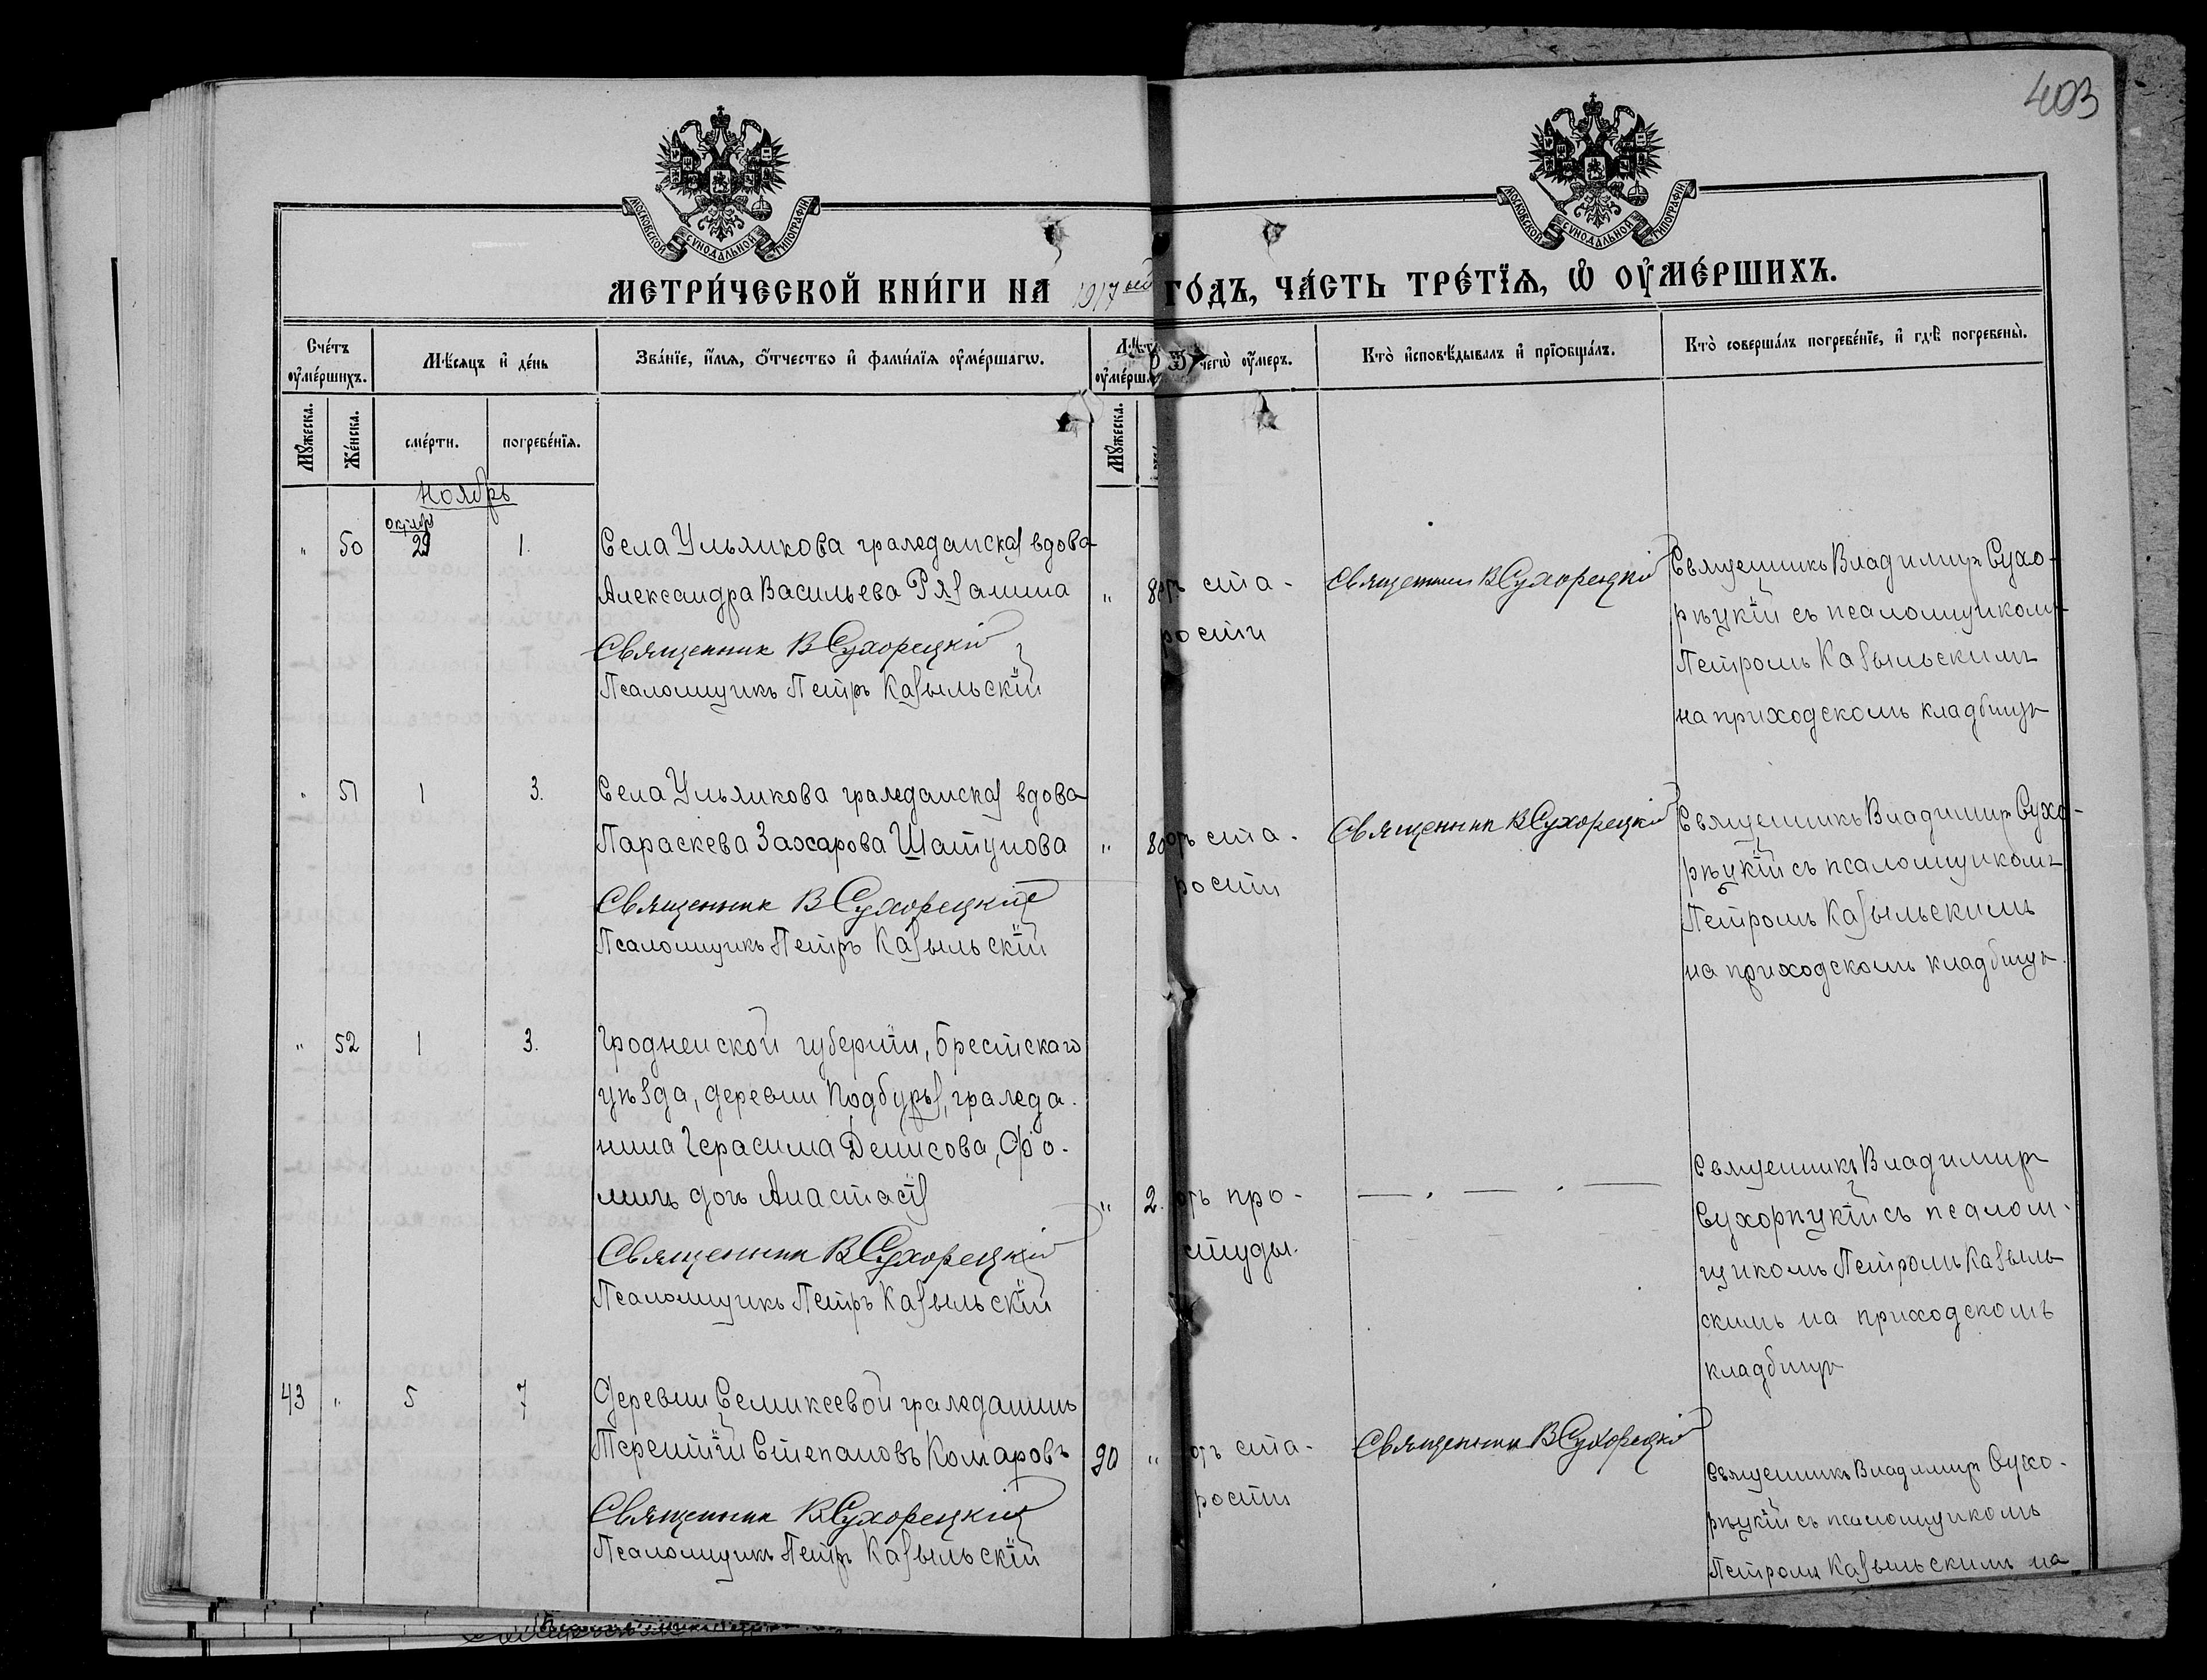 403
МОСКОВСКОЙ СѴНОДАЛЬНОЙ ТИПОГРАФІИ.
МОСКОВСКОЙ СѴНОДАЛЬНОЙ ТИПОГРАФІИ.
МЕТРИ́ЧЕСКОЙ КНИ́ГИ НА 1917ый ГО́ДЪ, ЧА́СТЬ ТРЕ́ТЇѦ, Ѡ҆ ОУ҆МЕ́РШИХЪ.
Сче́тъ оу҆ме́ршихъ.
Мѣ́сѧцъ и҆ де́нь
Зва́нїе, и҆́мѧ, ѻ҆́тчество и҆ фами́лїѧ оу҆ме́ршагѡ.
Лѣ́та оу҆ме́рша
Ѿ чегѡ̀ оу҆́меръ.
Кто̀ и҆сповѣ́дывалъ и҆ прїѡбща́лъ.
Кто̀ соверша́лъ погребе́нїе, и҆ гдѣ̀ погребены̀.
Мꙋ́жеска.
Же́нска.
сме́рти.
погребе́нїѧ.
Мꙋ́жеска.
Ноябрь
" 50 октябр 29 1.
Села Ульянкова гражданская вдова
Александра Васильева Рязанина
Священник В Сухорецкій
Псаломщикъ Петръ Казыльскій
" 80 отъ ста-
рости
Священник В Сухорецкій
Священникъ Владимир Сухо-
рѣцкій съ псаломщиком
Петромъ Казыльскимъ
на приходскомъ кладбищѣ
" 51 1 3.
Села Ульянкова гражданская вдова
Параскева Захарова Шатунова
Священник В Сухорецкій
Псаломщикъ Петръ Казыльскій
" 80 отъ ста-
рости
Священник В Сухорецкій
Священникъ Владимир Сухо-
рѣцкій съ псаломщикомъ
Петромъ Казыльскимъ
на приходскомъ кладбищѣ.
" 52 1 3.
Гродненской губерніи, Брестскаго
уѣзда, деревни Подбурья, гражда-
нина Герасима Денисова, Фо-
минъ дочь Анастасія
Священник В Сухорецкій
Псаломщикъ Петръ Казыльскій
" 2. отъ про-
студы.
Священникъ Владимир
Сухорѣцкій съ псалом-
щикомъ Петромъ Казыль
скимъ на приходскомъ
кладбищѣ
43 " 5 7
Деревни Семикеевой гражданинъ
Терентій Степановъ Комаровъ
Священник В Сухорецкій
Псаломщикъ Петръ Казыльскій
90 " отъ ста-
рости
Священник В Сухорецкій
Священникъ Владимир Сухо-
рѣцкій съ псаломщикомъ
Петромъ Казыльскимъ на